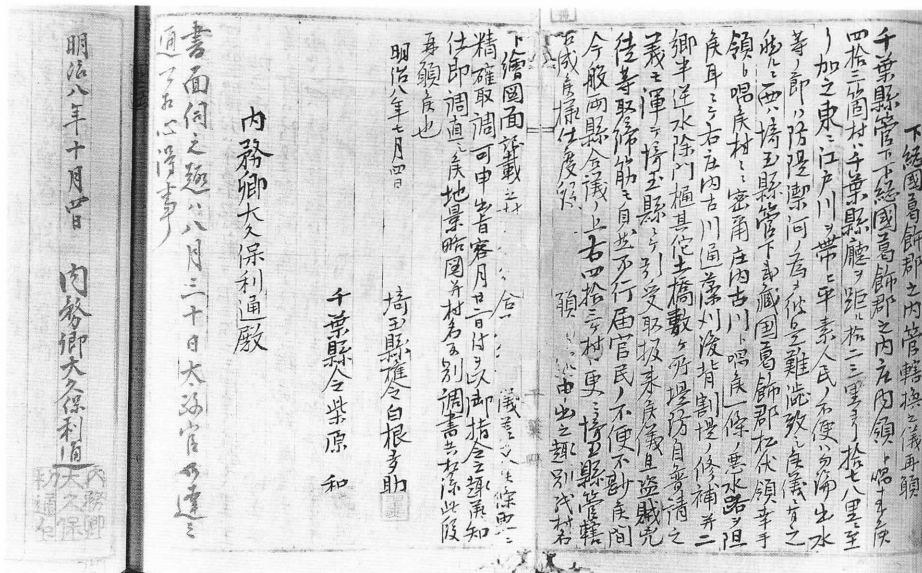 下総國葛飾郡之内管轄換之儀再願
千葉縣管下下総國葛飾郡之内庄内領ト唱来候
四拾三箇村ハ千葉縣廳ヲ距ル拾二三里ヨリ拾七八里ニ至
リ加之東ニ江戸川ヲ帯ヒ平素人民ノ不便ハ勿論出水
等ノ節ハ防隄禦河ノ為メ彼是難澁致シ候儀有之
然ルニ西ハ埼玉縣管下武蔵国葛飾郡松伏領幸手
領ト唱候村々ニ密甬庄内古川ト唱候一條ノ悪水路ヲ阻
候耳ニテ右庄内古川涌藻刈浚背割堤ノ修補并二
郷半逆水除門樋其佗土橋數ヶ所堤防自普請之
義モ渾テ埼玉縣ニテ引受取扱来候儀且盗賊兇
徒等取締筋モ自然不行届官民ノ不便不尠候間
今般両縣合議ノ上右四拾三ヶ村更ニ埼玉縣管轄
ト繪図面記載
精確取調可申出旨客月廿二日付ヲ以御指令之趣承知
仕即調直シ候地景略図并村名写別調書共相添此段
再願候也
明治八年七月四日
埼玉縣權令白根多助
千葉縣令柴原 和
内務卿大久保利通殿
書面伺之趣ハ八月三十日太政官ヨリ達之
通可相心得事
明治八年十月四日
内務卿大久保利通